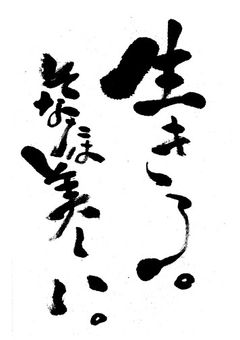 生きろ。
そなたは美しい。